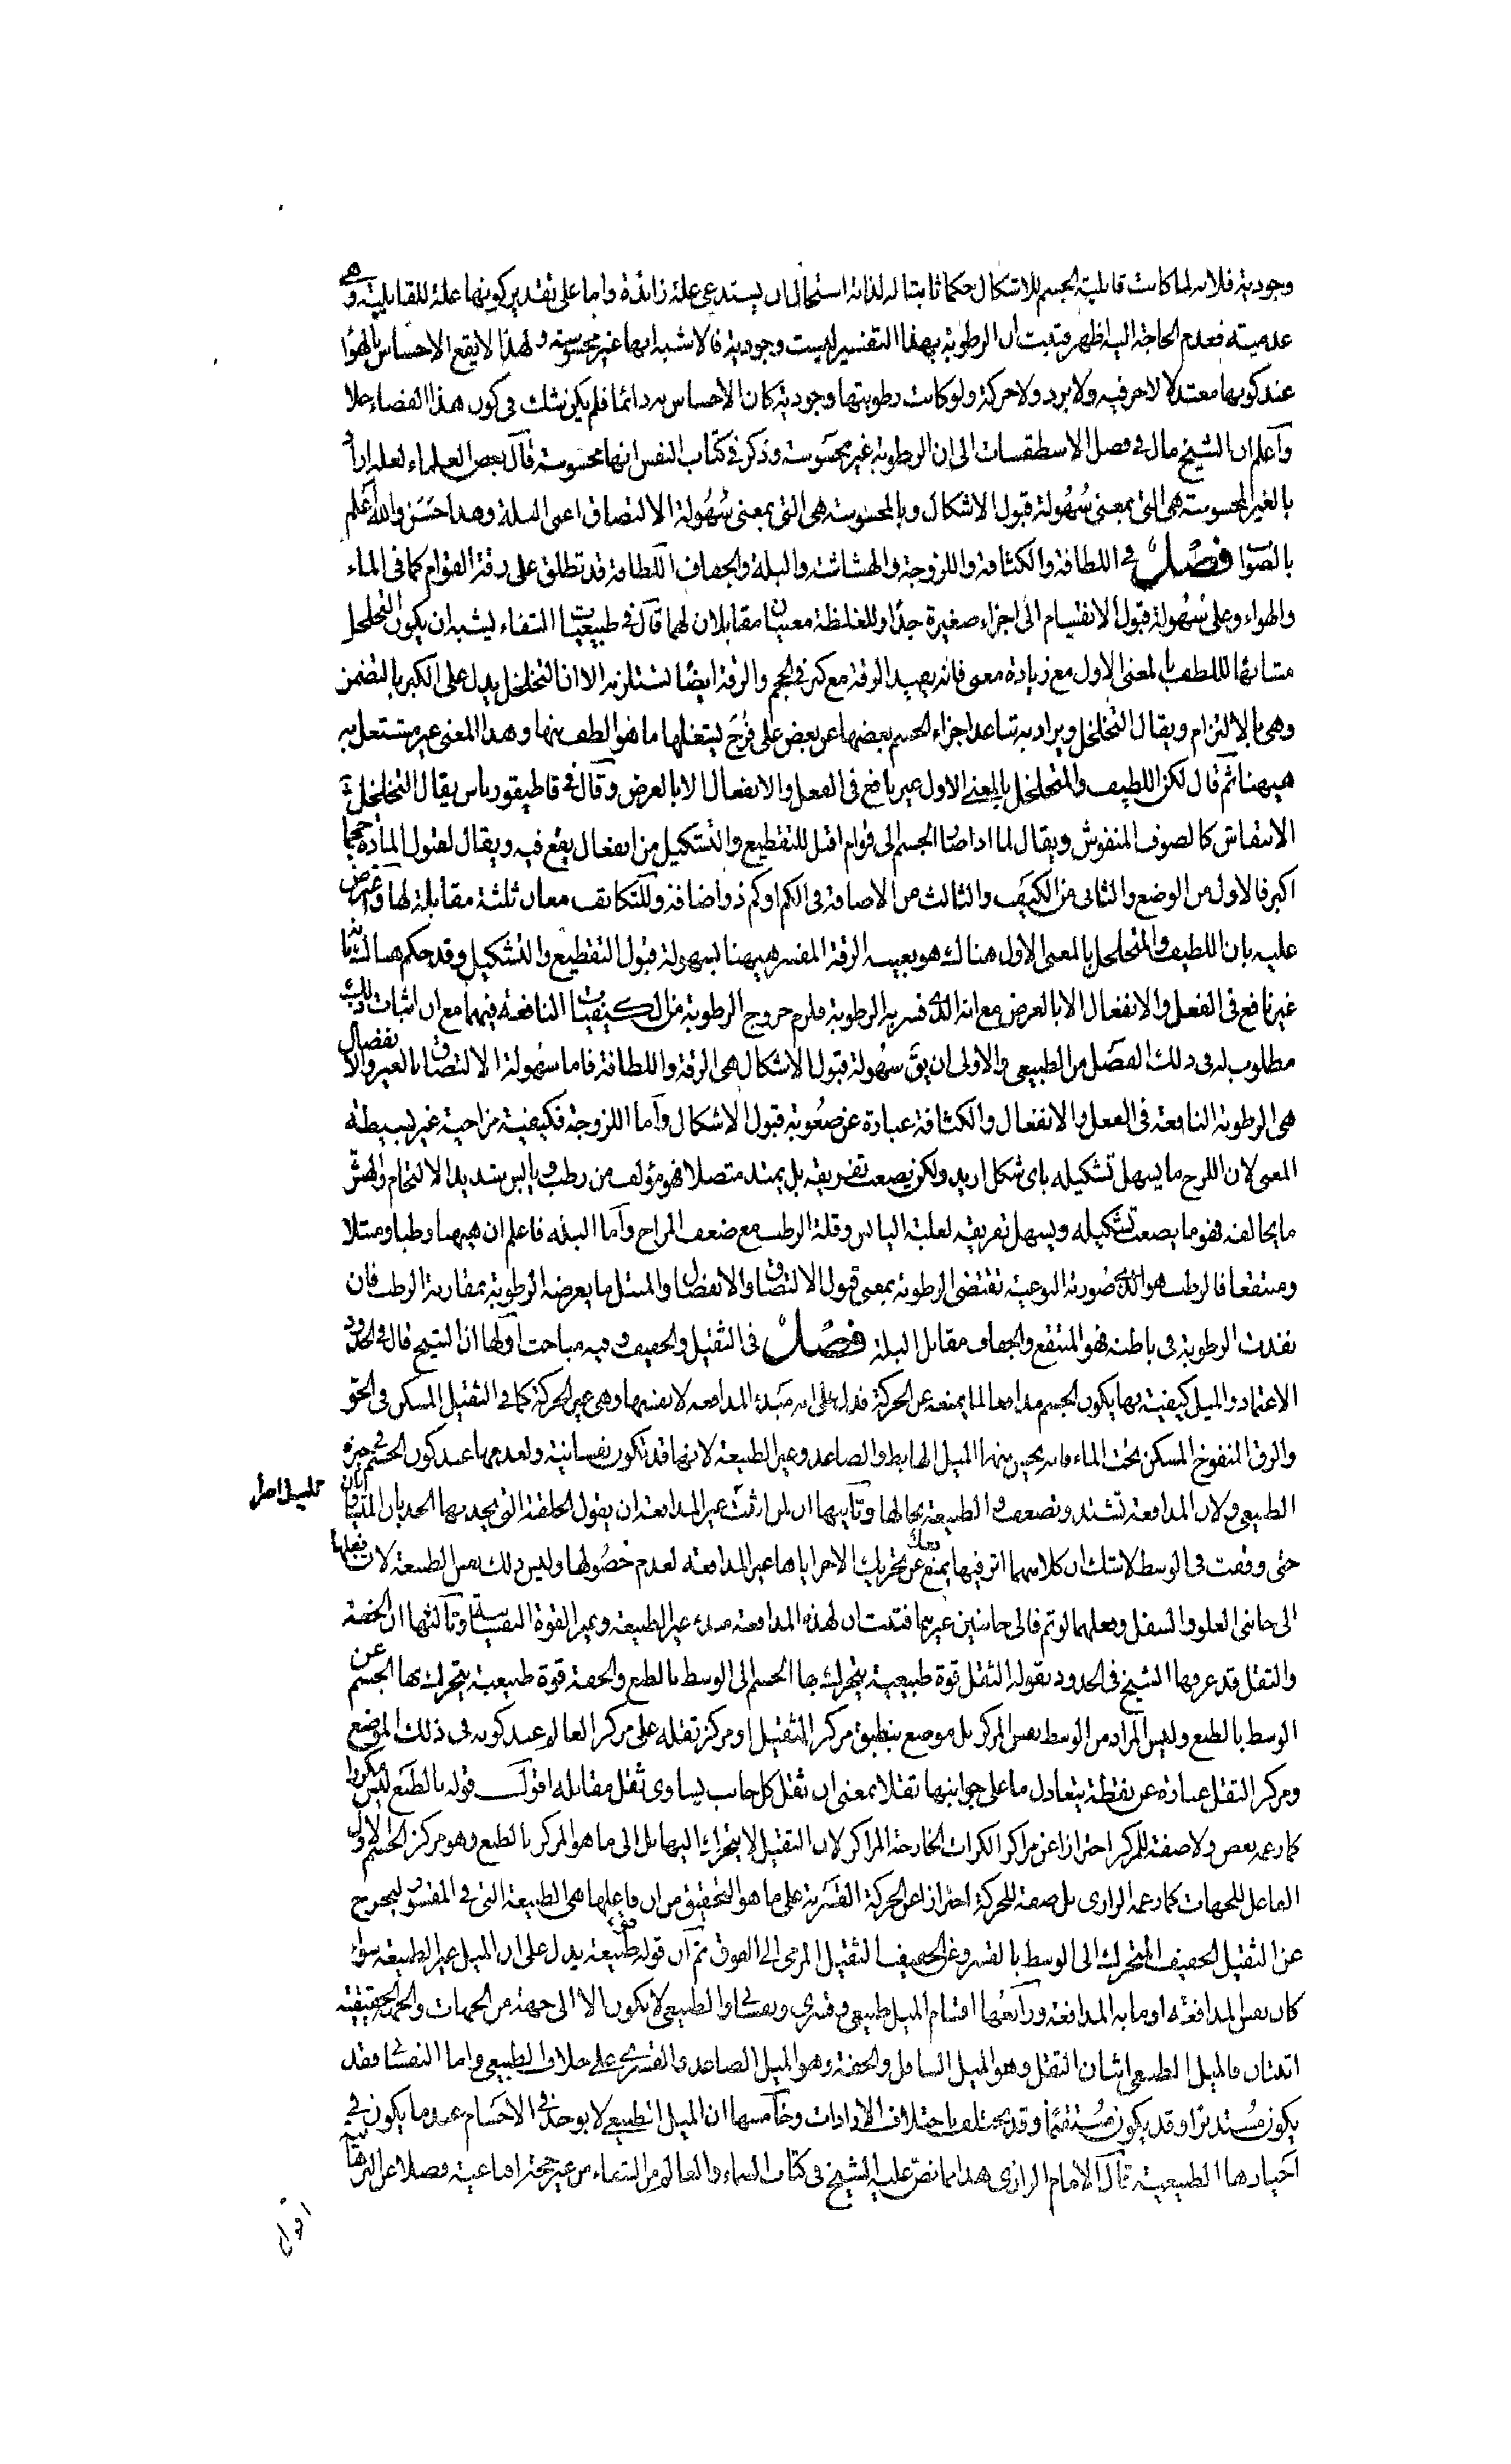 وجودية فلانه لما كانت قابلية الجسم للاشكال حكما ثابتا له لذاته استحال ان يستدعي علة زائدة واما على تقدير كونها علة للقابلية وهي
عدمية فعدم الحاجة اليه اظهر فثبت ان الرطوبة بهذا التفسير ليست وجودية فالاشبه انها غير محسوسة ولهذا لا يقع الاحساس بالهواء
عند كونها معتدلا لا حر فيه ولا برد ولا حركة ولو كانت رطوبتها وجودية كان الاحساس به دائما فلم يكن نشك في كون هذا الفضاء خلا
واعلم ان الشيخ مال في فصل الاسطقسات الى ان الرطوبة غير محسوسة وذكر في كتاب النفس انها محسوسة قال بعض العلماء لعله اراد
بالغير المحسوسة هي التي بمعنى سهولة قبول الاشكال وبالمحسوسة هي التي بمعنى سهولة الالتصاق اعني البلة وهذا حسن والله اعلم
بالصواب فصل في اللطافة والكثافة واللزوجة والهشاشة والبلة والجفاف اللطافة قد تطلق على رقة القوام كما في الماء
والهواء وعلى سهولة قبول الانقسام الى اجزاء صغيرة جدا وللغلظة معنيان مقابلان لهما قال في طبيعيات الشفاء ليشبه ان يكون التخلخل
مشابها للطف بالمعنى الاول مع زيادة معنى فانه يفيد الرقة مع كبر في الحجم والرقة ايضا تستلزمه الا ان التخلخل يدل على الكبر بالتضمن
وهي بالالتزام ويقال التخلخل ويراد به تباعد اجزاء الجسم بعضها عن بعض على فرج يشغلها ما هو الطف منها وهذا المعنى غير مشتغل به
هيهنا ثم قال لكن اللطيف والمتخلخل بالمعنى الاول غير نافع في الفعل والانفعال الا بالعرض وقال في قاطيغورياس يقال التخلخل
الانتفاش كالصوف المنفوش ويقال لما اذا صار الجسم الى قوام اقبل للتقطيع والتشكيل من انفعال يقع فيه ويقال لقبول المادة حجما
اكبر فالاول من الوضع والثاني من الكيف والثالث من الاضافة في الكم او كم ذو اضافة وللتكاثف معان ثلثة مقابلة لها واعترض
عليه بان اللطيف والمتخلخل بالمعنى الاول هناك هو بعينه الرقة المفسر هيهنا بسهولة قبول التقطيع والتشكيل وقد حكم هناك بانها
غير نافع في الفعل والانفعال الا بالعرض مع انه الذي فسر به الرطوبة فلزم خروج الرطوبة من الكيفيات النافعة فيهما مع ان اثبات ذلك
مطلوبه في ذلك الفصل من الطبيعي والاولى ان يق سهولة قبول الاشكال هي الرقة واللطافة فاما سهولة الالتصاق بالغير والانفصال
هي الرطوبة النافعة في الفعل والانفعال والكثافة عبارة عن صعوبة قبول الاشكال واما اللزوجة فكيفية مزاجية غير بسيطة
المعنى لان اللزج ما يسهل تشكيله باى شكل اريد ولكن يصعب تفريقه بل يمتد متصلا فهو مؤلف من رطب ويابس شديد الالتحام والهش
ما يخالفه فهو ما يصعب تشكيله ويسهل تفريقه لغلبة اليابس وقلة الرطب مع ضعف المزاج واما البلة فاعلم ان هيهنا رطبا ومبتلا
ومنتقعا فالرطب هو الذي صورته النوعية تقتضي الرطوبة بمعنى قبول الالتصاق والانفصال والمبتل ما يعرضه الرطوبة بمقارنة الرطب فان
نفذت الرطوبة في باطنه فهو المنتقع والجفاف مقابل البلة فصل في الثقيل والخفيف وفيه مباحث اولها ان الشيخ قال في الحدود
الاعتماد والميل كيفية بها يكون الجسم مدافعا لما يمنعه عن الحركة فدل على انه مبدء المدافعة لا نفسها وهي غير الحركة كما في الثقيل المسكن في الجو
والزق المنفوخ المسكن تحت الماء فانه يحس منهما الميل الهابط والصاعد وغير الطبيعة لانها قد تكون نفسانية ولعدمها عند كون الجسم في حيزه
الطبيعي ولان المدافعة تشتد وتضعف والطبيعة بحالها وثانيها ان لمن اثبت غير المدافعة ان يقول الحلقة التي يجذبها الجذبان المتساويان
حتى وقفت في الوسط لا شك ان كلا منهما اثر فيها فعلا يمنع عن تحريك الاخر اياها غير المدافعة لعدم حصولها وليس ذلك نفس الطبيعة لان فعلها
الى جانبي العلو والسفل وفعلهما لو تم فالى جانبين غيرهما فثبت ان لهذه المدافعة مبدء غير الطبيعة وغير القوة النفسانية وثالثها ان الخفة
والثقل قد عرفها الشيخ في الحدود بقوله الثقل قوة طبيعية يتحرك بها الجسم الى الوسط بالطبع والخفة قوة طبيعية يتحرك بها الجسم عن
الوسط بالطبع وليس المراد من الوسط نفس المركز بل موضع ينطبق مركز الثقيل او مركز ثقله على مركز العالم عند كونه في ذلك الموضع
ومركز الثقل عبارة عن نقطة يتعادل ما على جوانبها ثقلا بمعنى ان ثقل كل جانب يساوى ثقل مقابله اقول قوله بالطبع ليس مكررا
كما زعمه بعض ولا صفة للمركز احترازا عن مراكز الكرات الخارجة المراكز لان الثقيل لا يتحرك اليها بل الى ما هو المركز بالطبع وهو مركز الجسم الاول
الفاعل للجهات كما زعمه الرازى بل صفة للحركة احترازا عن الحركة القسرية على ما هو التحقيق من ان فاعلها هي الطبيعة التي في المقسور ليخرج
عن الثقيل الخفيف المتحرك الى الوسط بالقسر وعن الخفيف الثقيل المرمى الى الفوق ثم ان قوله قوة طبيعية يدل على ان الميل غير الطبيعة سواء
كان نفس المدافعة او ما به المدافعة ورابعها اقسام الميل طبيعي وقسري ونفساني والطبيعي لا يكون الا الى جهة من الجهات والجهة الحقيقية
اثنتان فالميل الطبيعي اثنان الثقل وهو الميل السافل والخفة وهو الميل الصاعد والقسري على خلاف الطبيعي واما النفساني فقد
يكون مستديرا وقد يكون مستقيما وقد يختلف باختلاف الارادات وخامسها ان الميل الطبيعي لا يوجد في الاجسام عند ما يكون في
احيازها الطبيعية قال الامام الرازى هذا مما نص عليه الشيخ في كتاب السماء والعالم من الشفاء من غير حجة اقناعية فضلا عن البرهان
اقول